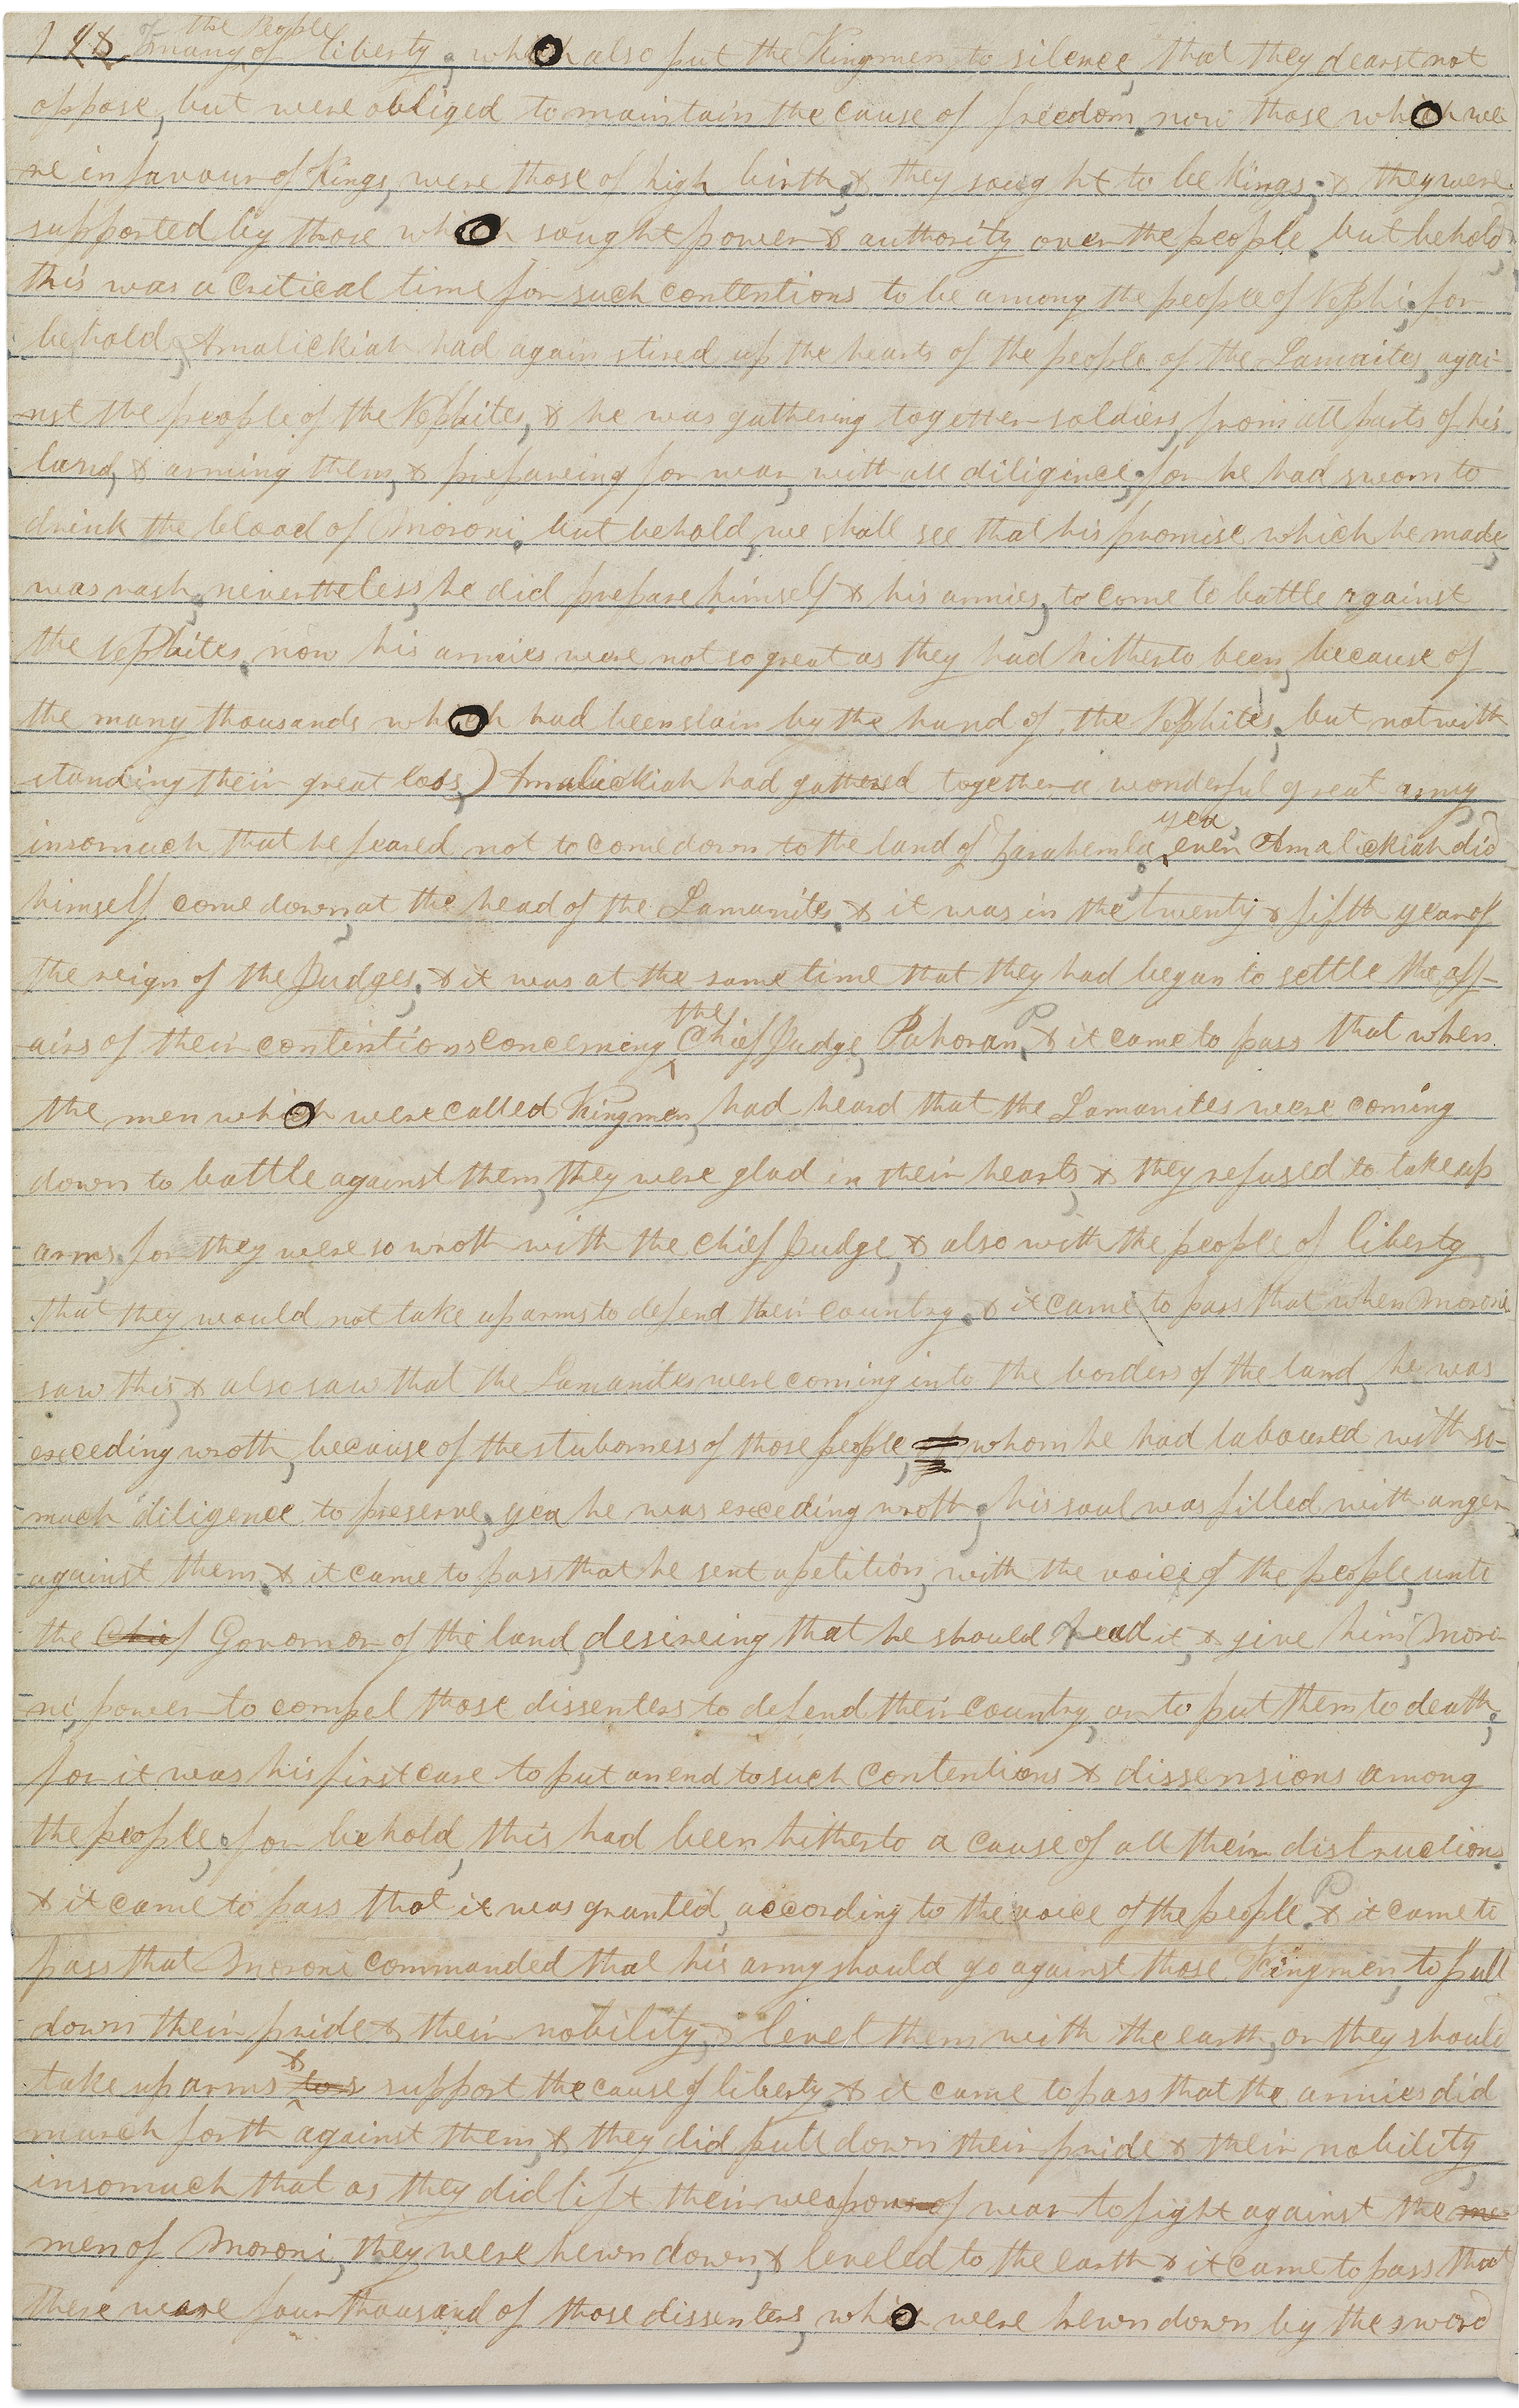 of the People
many of liberty, which also put the Kingmen to silence, that they dearst not
oppose, but were obliged to maintain the cause of freedom. now those which we
re in favour of Kings, were those of high birth, & they sought to be Kings; & they were
supported by those which sought power & authority over the people. but behold
this was a critical time for such contentions to be among the people of Nephi, for
behold, Amalickiah had again stired up the hearts of the people of the Lamaites, agai-
nst the people of the Nephites, & he was gathering together soldiers, from all parts of his
land, & arming them, & prepareing for war, with all diligince, for he had sworn to
drink the blood of Moroni. but behold, we shall see that his promise which he made,
was rash, nevertheless, he did prepare himself & his armies, to come to battle against
the Nephites. now his armies were not so great as they had hitherto been, because of
the many thousands which had been slain by the hand of the Nephites. but notwith
standing their great loss,) Amalickiah had gathered together a wonderful great army
insomuch that he feared not to come down to the land of Zarahemla. yea, even Amalickiah did
himself come down, at the head of the Lamanites. & it was in the twenty & fifth year of
the reign of the Judges. & it was at the same time that they had began to settle the aff-
airs of their contintions concerning the Chief Judge, Pahoran. & it came to pass that when
the men which were called Kingmen, had heard that the Lamanites were coming
down to battle against them, they were glad in their hearts, & they refused to take up
arms, for they were so wroth with the chief Judge, & also with the people of liberty,
that they would not take up arms to defend their country. & it came to pass that when Moroni
saw this, & also saw that the Lamanites were coming into the borders of the land, he was
exceding wroth, because of the stuborness of those people, whom he had laboured with so
much diligence to preserve, yea he was exceding wroth, his soul was filled with anger
against them. & it came to pass that he sent a petition, with the voice of the people, unto
the Chief Govornor of the land, desireing that he should read it, & give him (Moro
ni) power to compel those dissenters to defend their country, or to put them to death,
for it was his first care to put an end to such contentions & dissensions among
the people, for behold, this had been hitherto a cause of all their distructions.
& it came to pass that it was granted, according to the voice of the people. & it came to
pass that Moroni commanded that his army should go against those Kingmen, to pull
down their pride & their nobility, & level them with the earth, or they should
take up arms & to support the cause of liberty. & it came to pass that the armies did
march forth against them, & they did pull down their pride & their nobility,
insomuch that as they did lift their weapons of war to fight against the me
men of Moroni, they were hewn down, & leveled to the earth. & it came to pass that
there were four thousand of those dissenters, which were hewn down by the sword